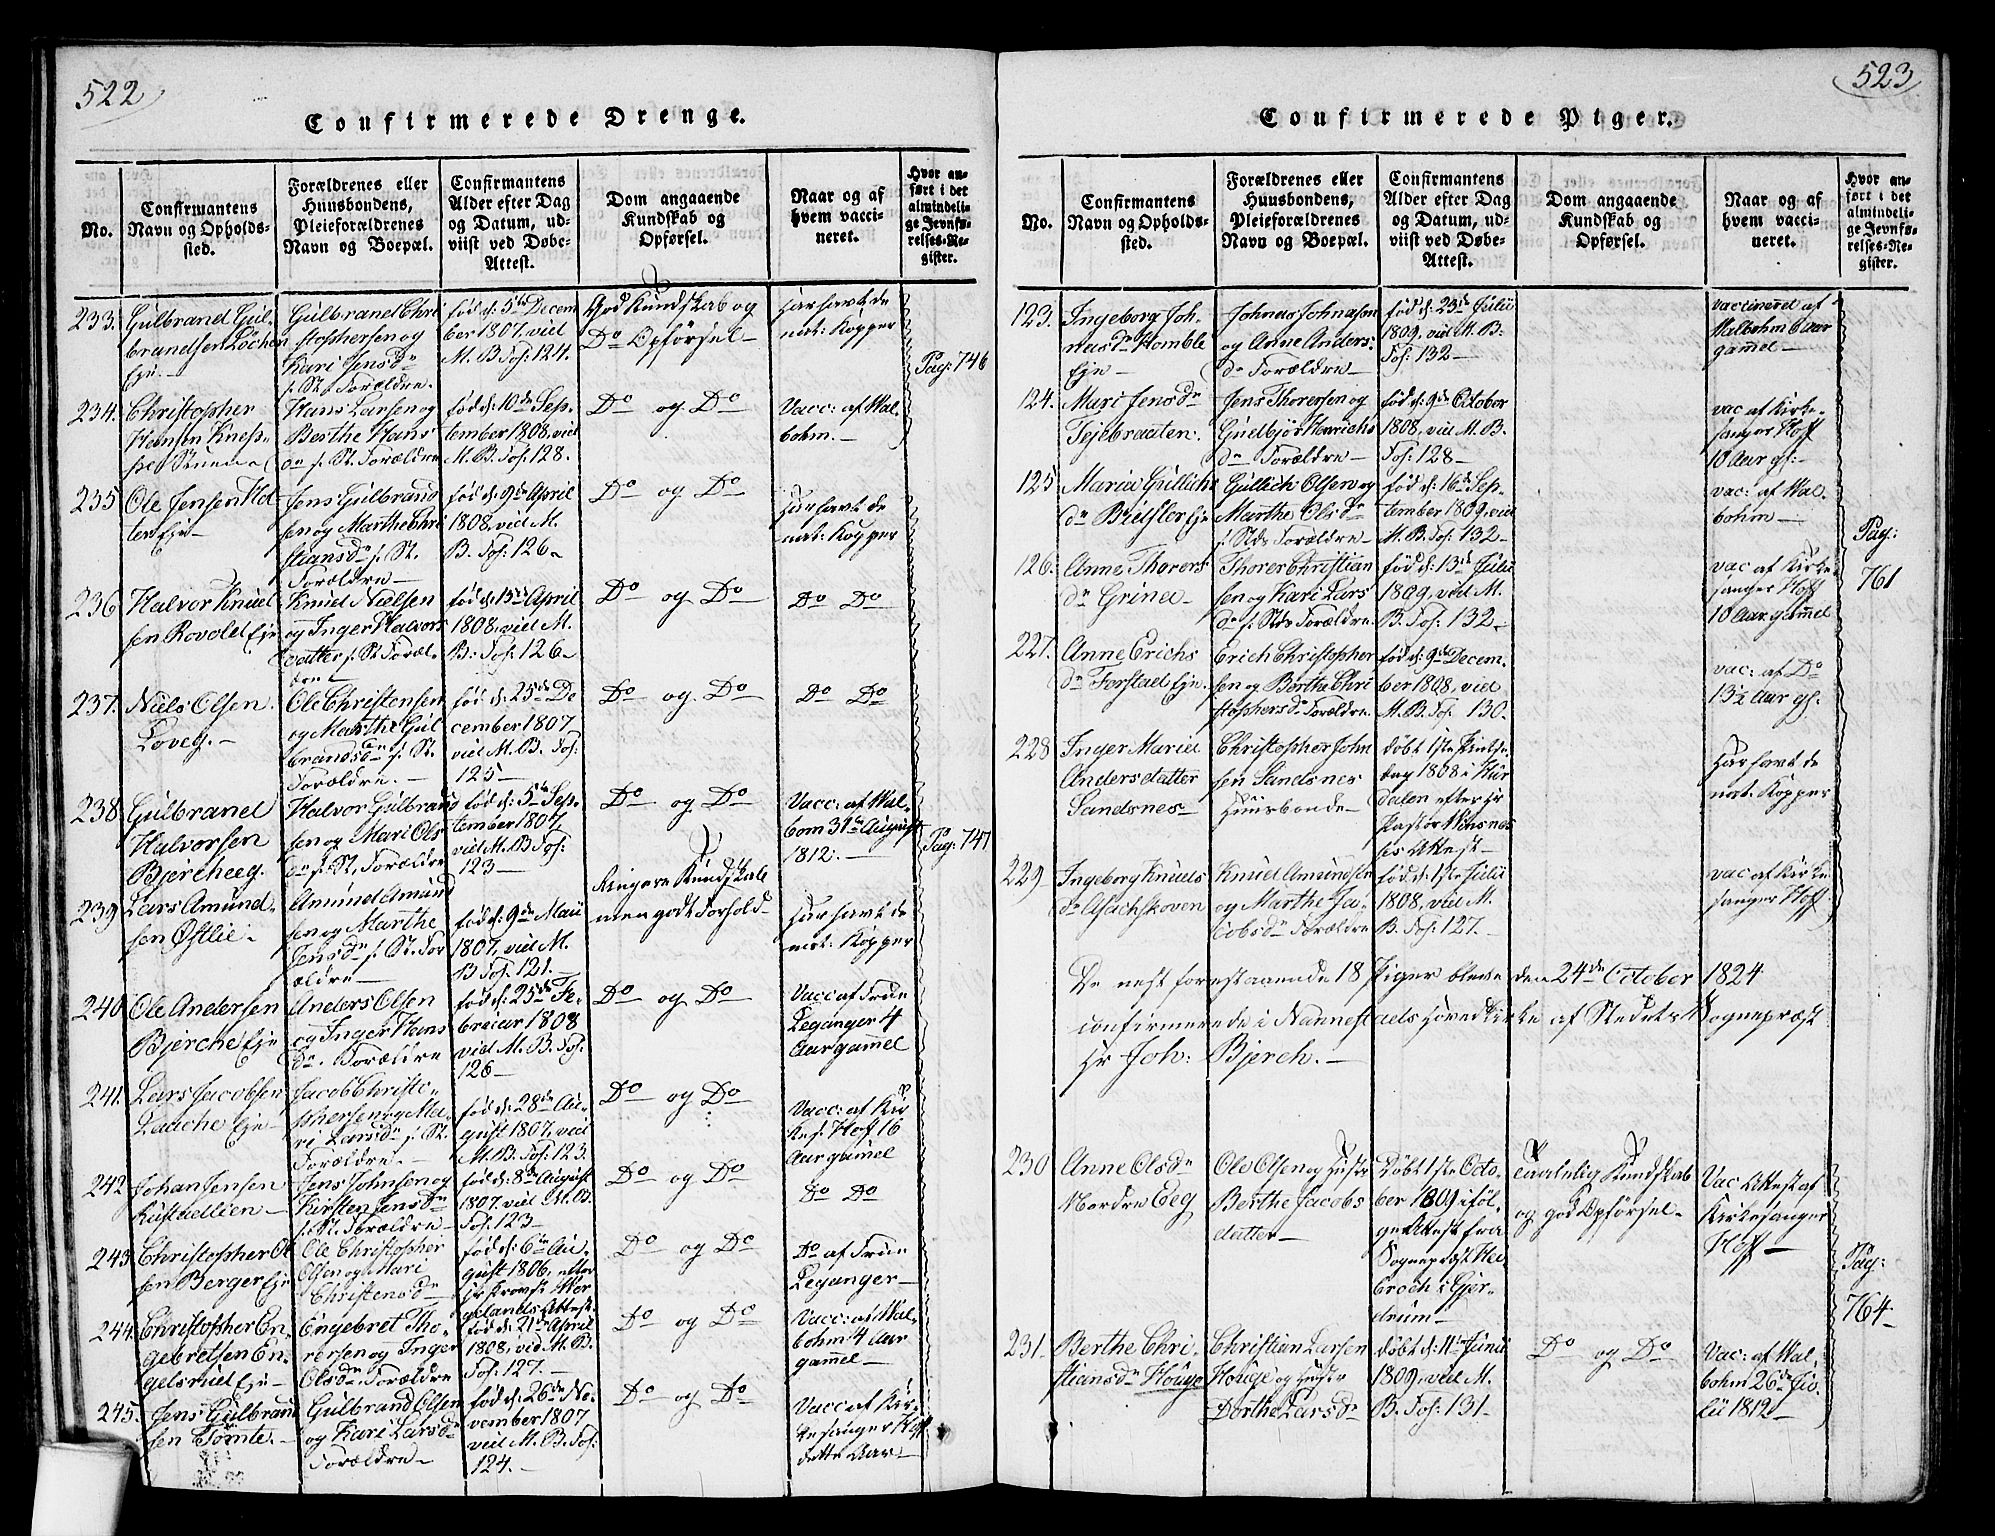 522
Confirmerede Drenge.
No.
Confirmantens
Navn og Opholds-
sted.
Forældrenes eller
Huusbondens,
Pleieforældrenes
Navn og Boepæl.
Confirmantens
Alder efter Dag
og Datum, ud-
viist ved Døbe-
Attest.
Dom angaaende
Kundskab og
Opførsel.
Naar og af
hvem vacci-
neret.
Hvor an-
ført i det
almindeli-
ge Jevnfø-
relses-Re-
gister.
233.
Gulbrand Gul-
brandsen Løchen
Eje.
Gulbrand Chri
stophersen og
Kari Jensdr
f. St. Forældre.
fød d: 5te Decem
ber 1807, vid
M. B. Fol: 124.
God Kundskab og
Do Opførsel
har havt de
nat: Kopper
Pag: 746
234.
Christopher
Hansen
Hans Larsen og
Berthe Hans
dr f. St. Forældre
fød d: 10de Sep-
tember 1808, vid
M. B. Fol: 128.
Do og Do
Vacc: af Mal-
bohm.
235
Ole Jensen
Eje
Jens Gulbrand
sen og Marthe Chri
stiansdr f. St.
Forældre
fød d: 9de April
1808, vid M.
B. Fol: 126
Do og Do
Har havt de
nat: Kopper
236
Halvor Knud
sen Rovold Eje
Knud Nielsen
og Inger Halvors
datter f. St. Foræl-
dre
fød d: 13de April
1808, vid M.
B: Fol: 126
Do og Do
Do Do
237.
Niels Olsen
Loveg.
Ole Christensen
og Marthe Gul
brandsdr f. St.
Forældre.
fød d: 25de De
cember 1807
vid M. B. Fol:
125
Do og Do
Do Do
238
Gulbrand
Halvorsen
Bjercheeg.
Halvor Gulbrand
sen og Mari Ols
dr f. St. Forældre
fød d: 5te Sep-
tember 1807
vid M. B Fol:
123
Do og Do
Vacc: af Mal-
bom 31te August
1812.
Pag: 747
239
Lars Amund-
sen Østlie
Amund Amund
sen og Marthe
Jensdr f. St. For
ældre
fød d: 9de Maii
1807, vid M.
B Fol: 121.
Ringere Kundskab
men godt Forhold
Har havt de
nat: Kopper
240
Ole Andersen
Bjerche Eje
Anders Olsen
og Inger Hans
dr. Forældre
fød d: 25de Fe-
bruar 1808
vid M. B. Fol:
126
Do og Do
Vacc af Frue
Leganger 4
Aar gammel
241.
Lars Jacobsen
Lauche Eje
Jacob Christo-
phersen og Ma-
ri Larsdr f. St.
Forældre.
fød d: 28de Au-
gust 1807, vid
M. B. Fol: 123.
Do og Do
Vacc: af Kir
kes. Hoff 16
Aar gamel
242
Johan Jensen
Rustadlien
Jens Johnsen og
Kirsten Jensdr
f. St. Forældre
fød d: 8de August
1807. vid M. B.
Fol: 123
Do og Do
Do Do
243
Christopher Ol
sen Berger Eje
Ole Christopher
Olsen og Mari
Christensdr
fød d: 6te Au-
gust 1806, efter
Hr Provst Wer
gelands Attest.
Do og Do
Do af Frue
Leganger
244.
Christopher En-
gebretsen En-
gelsrud Eje
Engebret Tho-
rersen og Inger
Olsdr. Forældre
fød d: 21de April
1808, vid M. B.
Fol: 127
Do og Do
Vacc: af Mal-
bohm 4 Aar
gammel
245.
Jens Gulbrand
sen Tømte.
Gulbrand Olsen
og Kari Larsdr
Forældre
fød d: 26de No-
vember 1807
vid M. B. Fol:
124.
Do og Do
Vacc af Kir-
kesanger Hoff
dette Aar
523
Confirmerede Piger.
No.
Confirmantens
Navn og Opholds-
sted.
Forældrenes eller
Huusbondens,
Pleieforældrenes
Navn og Boepæl.
Confirmantens
Alder efter Dag
og Datum, ud-
viist ved Døbe-
Attest.
Dom angaaende
Kundskab og
Opførsel.
Naar og af
hvem vacci-
neret.
Hvor an-
ført i det
almindeli-
ge Jevnfø-
relses-Re-
gister.
123.
Ingeborg Joh-
nasdr Homble
Eje
Johnas Johnassen
og Anne Anders-
dr Forældre
fød d: 23de Julii
1809, vid M. B:
Fol: 132
vaccineret af
Malbohm 6 Aar
gammel
124.
Mari Jensdr
Tejebraaten.
Jens Thoresen og
Gudbjør Henrichs
dr Forældre
fød d: 9de October
1808, vid M. B.
Fol: 128
vac af Kirke-
sanger Hoff
10 Aar gl:
125
Maria Gullichs
dr Bielsler Eje
Gullich Olsen og
Marthe Olsdr
f. Stds Forældre
fød d: 16de Sep-
tember 1809, vid
M. B. Fol: 132
vac: af Mal-
bohm
Pag:
761
126.
Anne Thorers
dr Grina
Thorer Christian
sen og Kari Lars
dr f. Stds Forældre
fød d: 13de Julii
1809, vid M.
B. Fol: 132
vac af Kirke-
sanger Hoff
10 Aar gammel
227.
Anne Erichs
dr Forstad Eje.
Erich Christopher
sen og Berthe Chri
stophersdr Forældre
fød d: 9de Decem-
ber 1808, vid
M. B. Fol: 130
vac: af Do
13½ Aar gl.
228
Inger Marie
Andersdatter
Sandsnes
Christopher John
sen Sandsnes
Huusbonde
døbt 1ste Pintse
dag 1808 i Hur
dalen efter Hr
Pastor Winsnes
ses Attest
Har havt de
nat. Kopper
229
Ingeborg Knuds
dr Asachskoven
Knud Amundsen
og Marthe Ja-
cobsdr Forældre
fød d: 1ste Julii
1808, vid M.
B. Fol: 127.
vac af Kirke
sanger Hoff
De nest forestaaende 18 Piger bleve den 24de October 1824
confirmerede i Nannestads Hovedkirke af Stedets Sognepræst
Hr Joh: Bjerch.
230
Anne Olsdr
Nordre Eeg
Ole Olsen og Hustr
Berthe Jacobs
datter
Døbt 1ste Octo-
ber 1809 iføl-
ge Attest fra
Sognepræst Hei
broch i Gjer-
drum
Taalelig Kundskab
og god Opførsel
Vac Attest af
Kirkesanger
Hoff
Pag:
764
231.
Berthe Chri-
stiansdr Houge
Christian Larsen
Houge og Hustr
Dorthe Larsdr
døbt d: 11te Junii
1809, vid M.
B. Fol: 131
Do og Do
Vac: af Mal-
bohm 26de Ju-
lii 1812